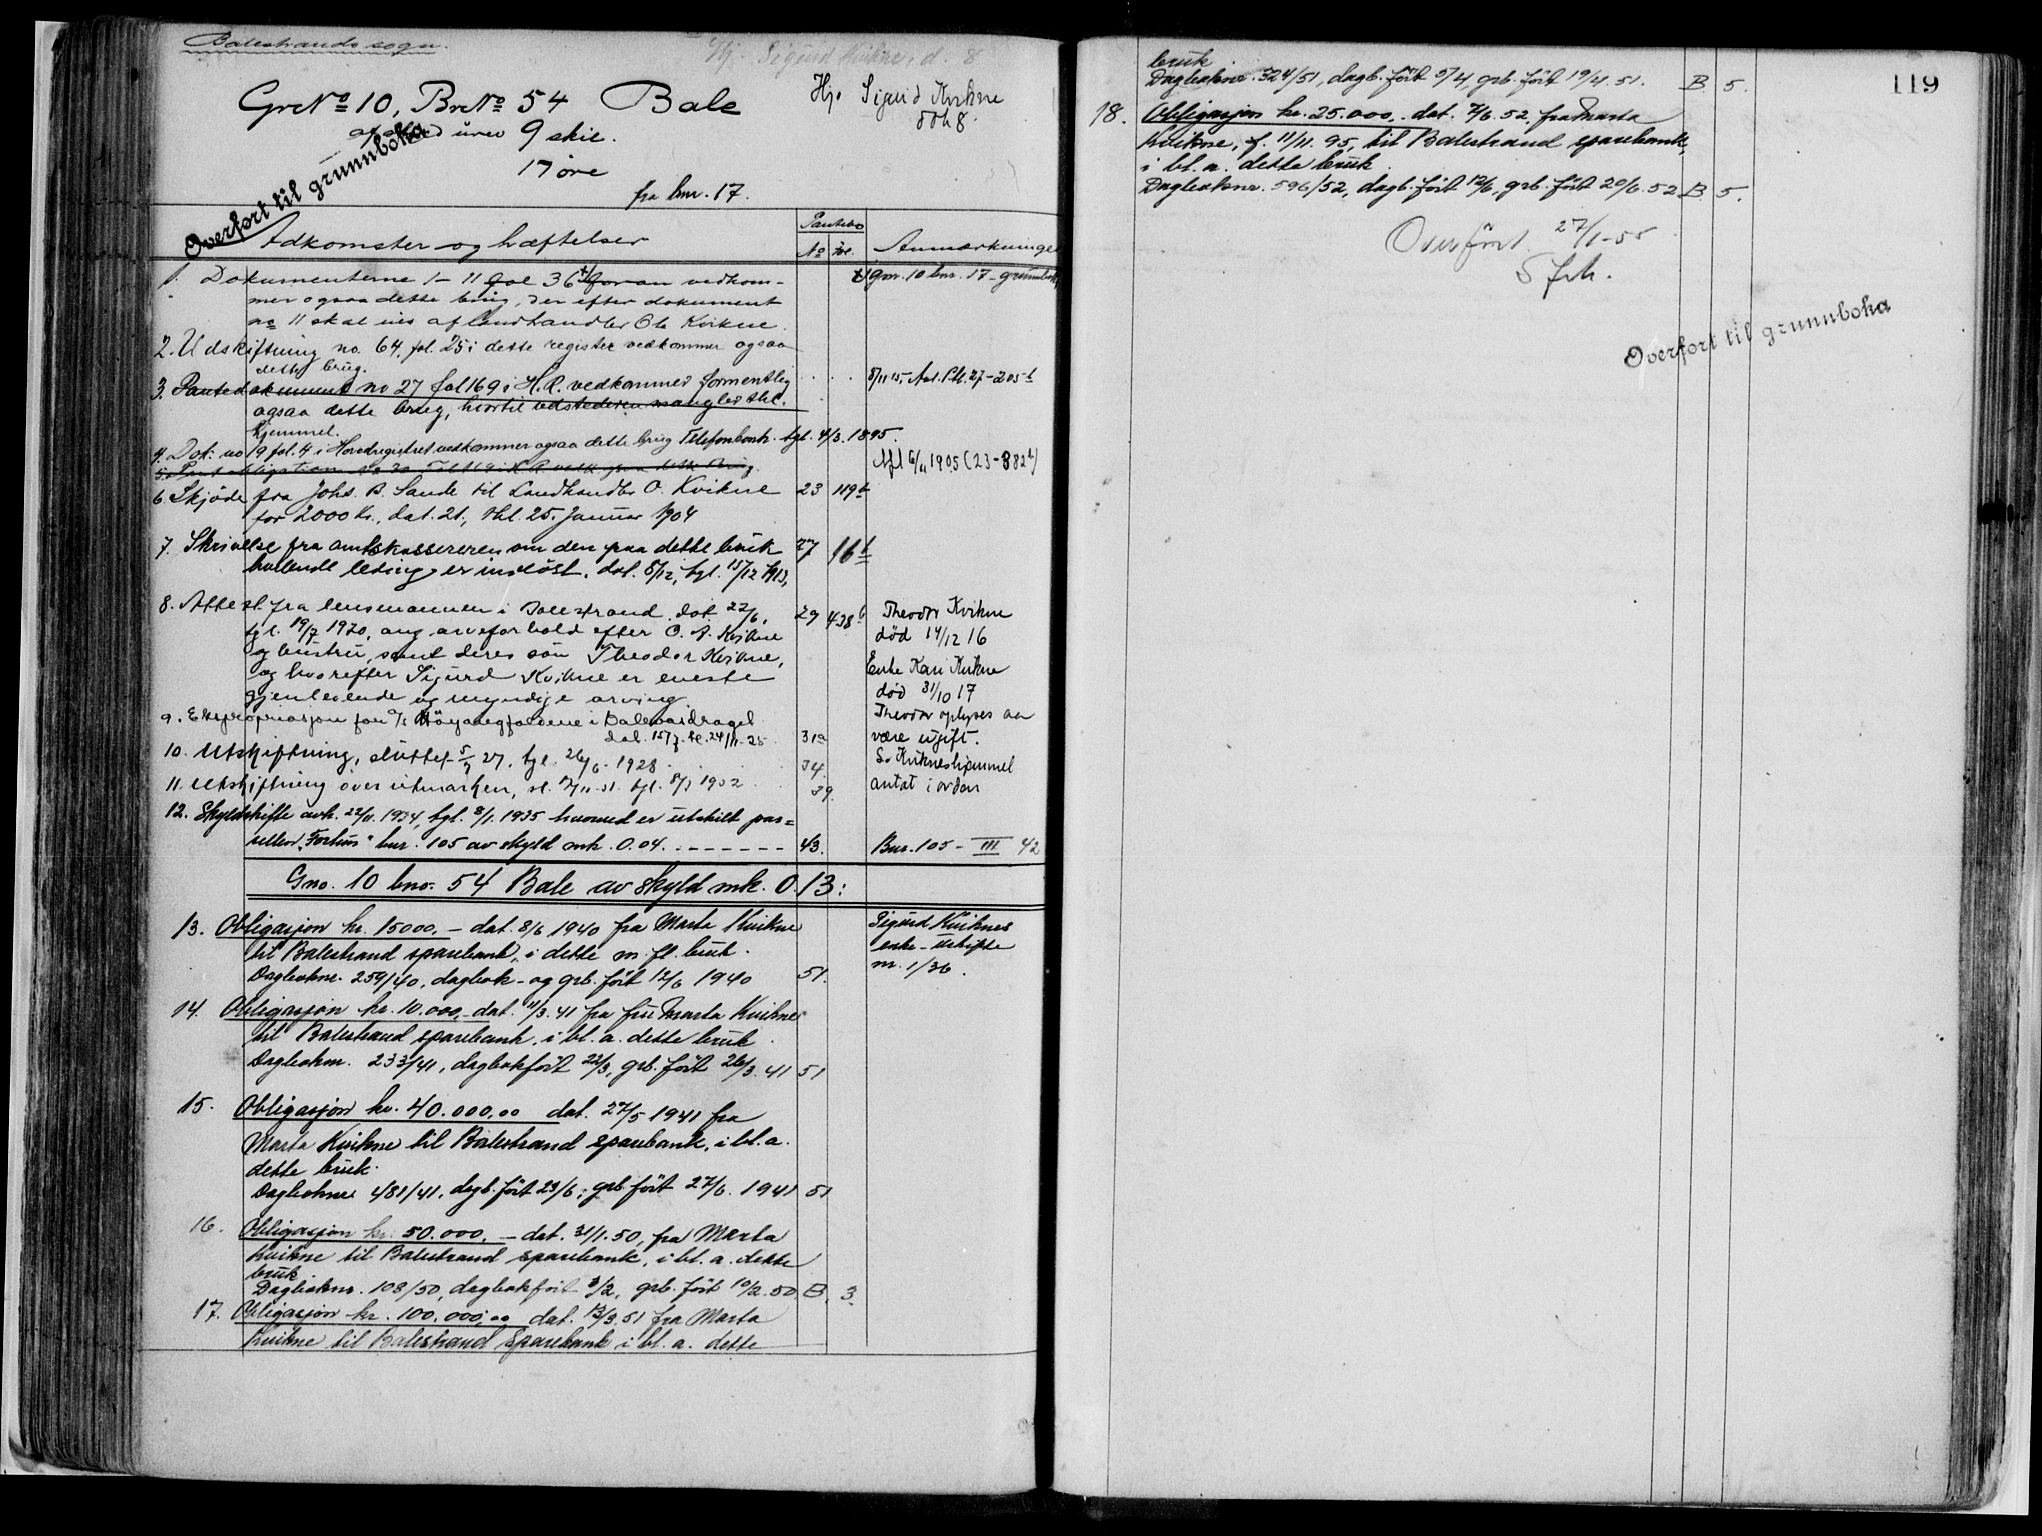 Balestrands sogn.
Hj. Sigurd Kvikne, d. 8
GrNo 10, BrNo 54 Bale
Hj. Sigurd Kvikne
dok 8.
af skyld urev 9 skil.
17 øre
fra bnr. 17.
Overført til grunnboka
Adkomster og hæftelser
Pantebo
No fol. Anmærkninger
1. Dokumenterne 1 - 11 fol 36 foran vedkom-
mer ogsaa dette brug, der efter dokument
no 11 skal eies af landhandler Ole Kvikne.
gnr. 10 bnr. 17 - grunnbok
2. Udskiftning no. 64, fol. 25 i dette register vedkommer ogsaa
dette brug.
3. Pantedokument no 27 fol 169 i H.R. vedkommer formentlig
ogsaa dette brug, hvortil udstederen mangler thl.
hjemmel.
8/11 15, Avl. Pb. 27-205b
4. Dok: no 19 fol. 4 i Hovedregistret vedkommer ogsaa dette brug Telefonkontr. tgl. 4/3. 1895.
5. Pantobligation No 30 Fol 169 i H.R. vedk. ogsaa dette Brug.
Afl 6/11 1905 (23-382b)
6. Skjøde fra Johs. B. Sande til Landhandler O. Kvikne 23 119b
for 2000 Kr., dat. 21, thl. 25. Januar 1904
7. Skrivelse fra amtskassereren om den paa dette bruk 27 16b
hvilende leding er indløst, dat. 5/12, tgl. 15/12 1913,
8. Attest fra lensmannen i Balestrand dat 22/6, 29 438b
tgl. 19/7 1920, ang arveforhold efter O. A. Kvikne
og hustru, samt deres søn Theodor Kvikne,
og hvorefter Sigurd Kvikne er eneste
gjenlevende og myndige arving.
Theodor Kvikne
død 14/12 16
Enke Kari Kvikne
død 31/10 17
Theodor oplyses aa
være ugift.
S. Kvikneshjemmel
antat i orden
9. Ekspropriasjon for A/S Høyangfaldene i Balevasdraget
dat. 15/7. tl. 24/11-25 31a
10. Utskiftning, sluttet 5/9 27, tgl. 26/6 1928 34.
11. Utskiftning over utmarken, sl. 2/11-31 tgl. 8/1 1932 39.
12. Skyldskifte avh. 22/11. 1934, tgl. 8/1. 1935 hvorved er utskilt par=
sellen "Fortun" bnr. 105 av skyld mk. 0.04. - - - - - - - 43. Bnr. 105 - III 42
Gno. 10 bno. 54 Bale av skyld mk. 0.13:
13. Obligasjon kr. 15000, - dat. 8/6 1940 fra Marta Kvikne
til Balestrand sparebank, i dette m. fl. bruk.
Dagboknr. 259/40, dagbok- og grb. ført 12/6 1940 51.
Sigurd Kviknes
enke - Uskifte
nr. 1/36.
14. Obligasjon kr. 10.000,- dat. 11/3. 41 fra fru Marta Kvikne
til Balestrand sparebank, i bl. a. dette bruk.
Dagboknr. 233/41, dagbokført 22/3, grb. ført 26/3. 41 51
15. Obligasjon kr. 40.000,00 dat. 27/5 1941 fra
Marta Kvikne til Balestrand sparebank, i bl. a.
dette bruk.
Dagboknr 481/41, dagb. ført 23/6, grb. ført 27/6. 1941 51
16. Obligasjon kr. 50.000, - dat. 31/1. 50, fra Marta
Kvikne til Balestrand sparebank, i bl. a. dette
bruk.
Dagboknr. 108/50, dagbokført 3/2, grb. ført 10/2. 50 B. 3.
17. Obligasjon kr. 100.000,00 dat. 13/3. 51 fra Marta
Kvikne til Balestrand Sparebank i bl. a. dette
119
bruk.
Dagboknr. 324/51, dagb. ført 5/4, grb. ført 19/4. 51. B 5.
18. Obligasjon kr. 25.000,- dat. 7/6. 52, fra Marta
Kvikne, f. 11/11. 95, til Balestrand sparebank,
i bl. a. dette bruk.
Dagboknr. 596/52, dagb. ført 12/6, grb. ført 20/6. 52 B 5.
Overført 27/1-55
Overført til grunnboka